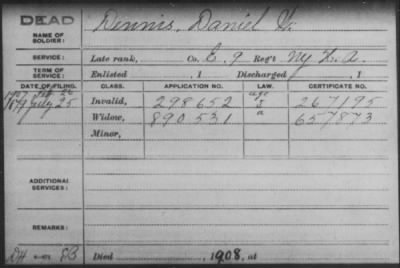 DEAD
NAME OF SOLDIER: Dennis, Daniel
SERVICE: Late rank, Co. L. 9 Reg't NY H. A.
TERM OF SERVICE: Enlisted , 1 Discharged , 1
DATE OF FILING. CLASS. APPLICATION NO. LAW. CERTIFICATE NO.
1879 July 25 Invalid, 298652 267195
Widow, 890531 a 657873
Minor,
ADDITIONAL SERVICES:
REMARKS:
Died 1908, at